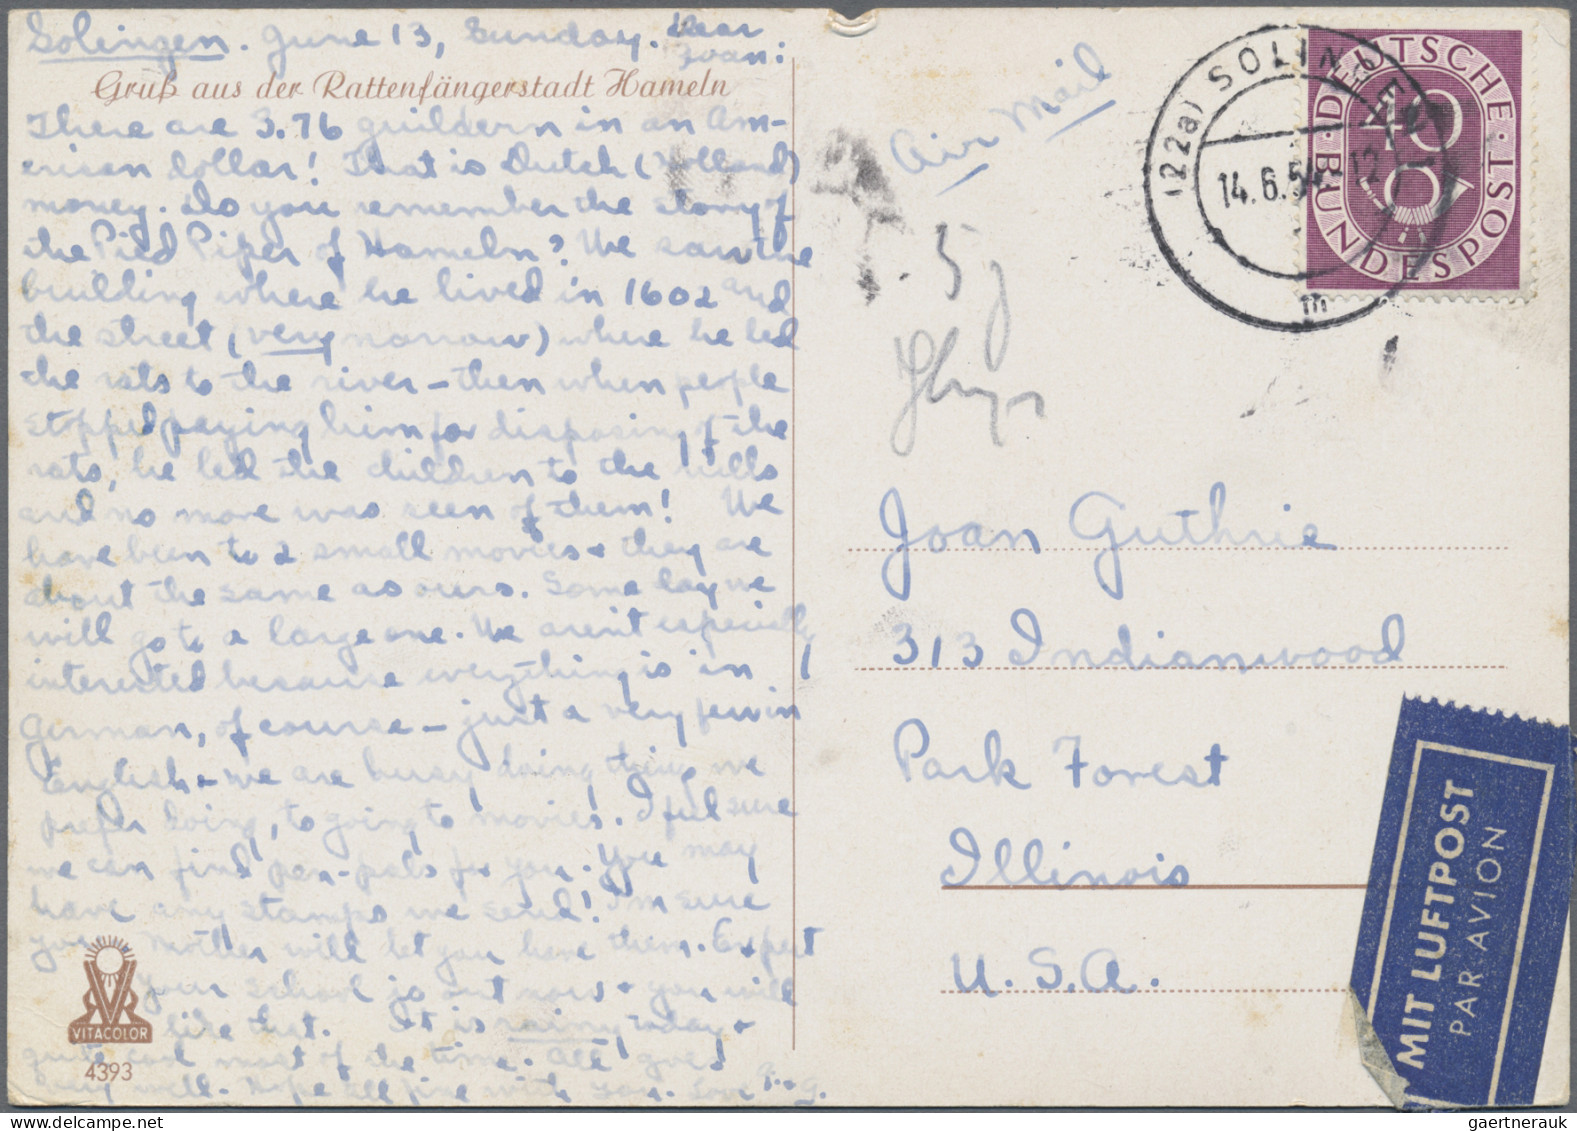 Solingen. June 13, Sunday. Dear
Joan:
Gruß aus der Rattenfängerstadt Hameln
There are 3.76 guildern in an Am-
erican dollar! That is Dutch (Holland)
money. Do you remember the story of
the Pied Piper of Hameln? We saw the
building where he lived in 1602 and
the street (very narrow) where he led
the rats to the river – then when people
stopped paying him for disposing of the
rats, he led the children to the hills
and no more was seen of them! We
have been to 2 small movies + they are
about the same as ours. Some day we
will go to a large one. We aren't especially
interested because everything is in
German, of course – just a very few in
English + we are busy doing things we
prefer doing, to going to movies. I feel sure
we can find pen-pals for you. You may
have any stamps we send! I'm sure
your Mother will let you have them. Expect
your school is out now + you will
like that. It is rainy today +
quite cool most of the time. All goes
very well. Hope all fine with you. Love
VITACOLOR
4393
Air Mail
5g
(22a) SOLINGEN
14.6.54-12
m
DEUTSCHE BUNDESPOST
40
Joan Guthrie
313 Indianwood
Park Forest
Illinois
U.S.A.
MIT LUFTPOST
PAR AVION
gaertnerauk.com